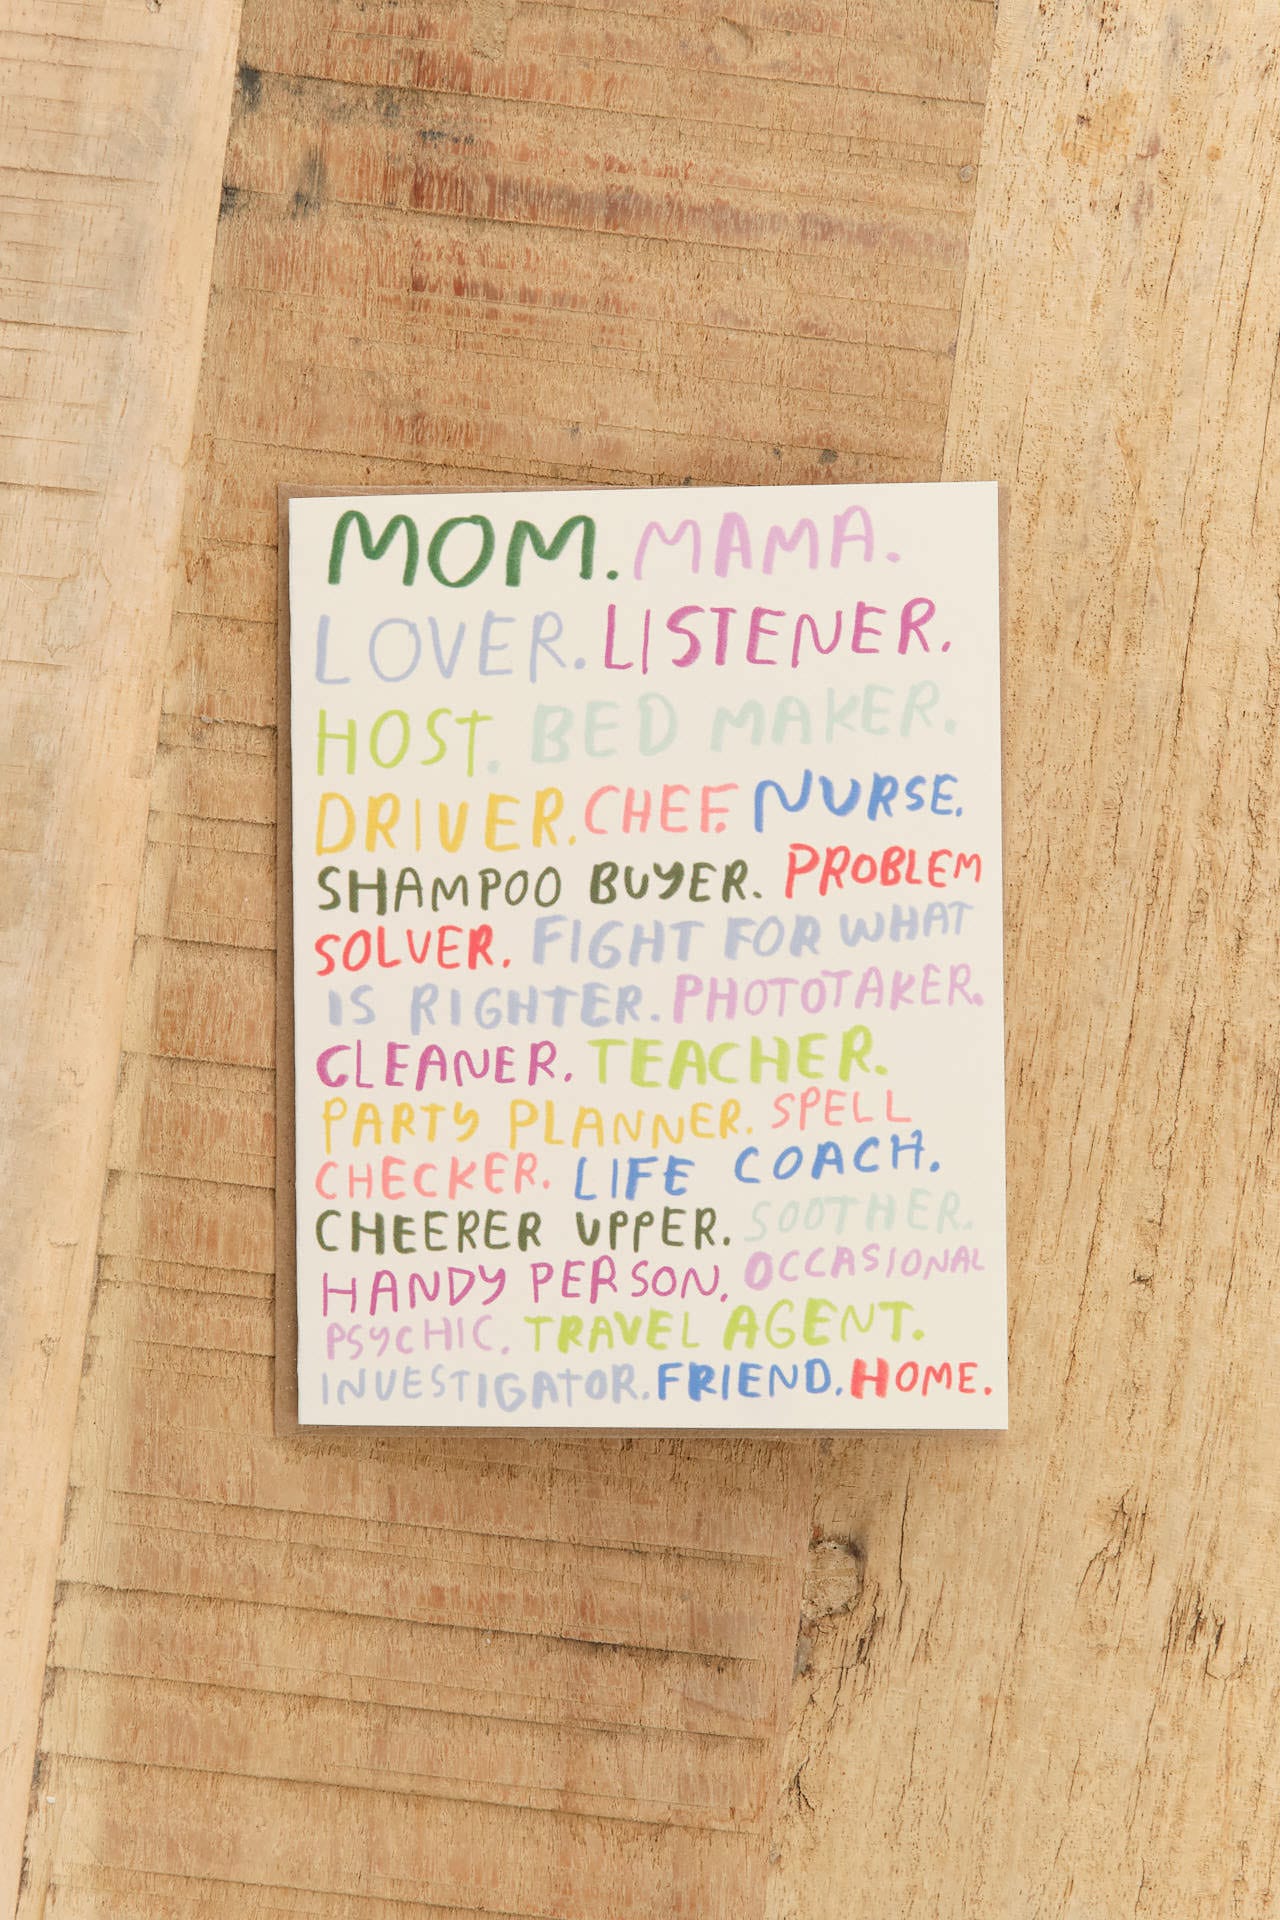 MOM. MAMA.
LOVER. LISTENER.
HOST. BED MAKER.
DRIVER. CHEF. NURSE.
SHAMPOO BUYER. PROBLEM
SOLVER. FIGHT FOR WHAT
IS RIGHTER. PHOTOTAKER.
CLEANER. TEACHER.
PARTY PLANNER. SPELL
CHECKER. LIFE COACH.
CHEERER UPPER. SOOTHER.
HANDY PERSON. OCCASIONAL
PSYCHIC. TRAVEL AGENT.
INVESTIGATOR. FRIEND. HOME.